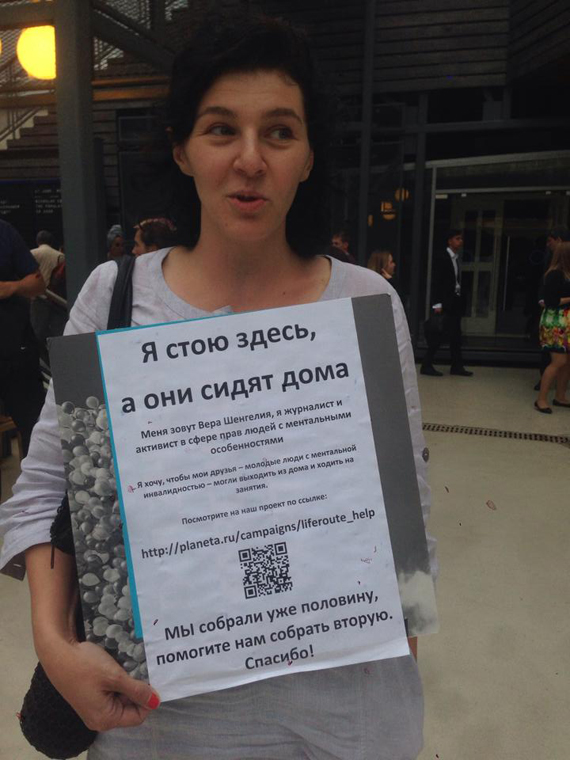 Я стою здесь,
а они сидят дома
Меня зовут Вера Шенгелия, я журналист и
активист в сфере прав людей с ментальными
особенностями
Я хочу, чтобы мои друзья – молодые люди с ментальной
инвалидностью – могли выходить из дома и ходить на
занятия.
Посмотрите на наш проект по ссылке:
http://planeta.ru/campaigns/liferoute_help
Мы собрали уже половину,
помогите нам собрать вторую.
Спасибо!